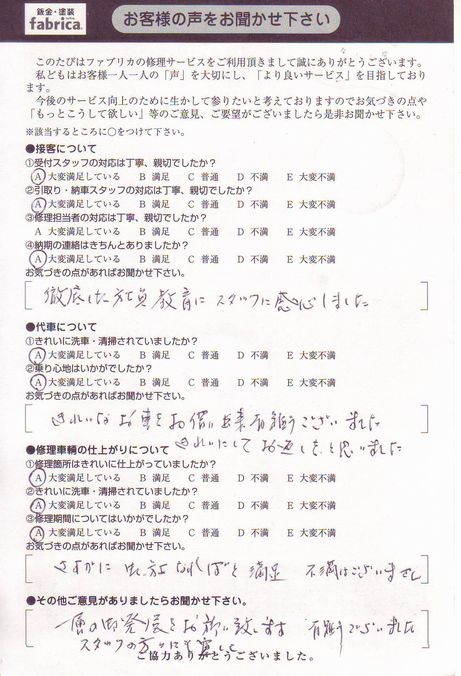 鈑金・塗装
fabrica.
お客様の声をお聞かせ下さい
このたびはファブリカの修理サービスをご利用頂きまして誠にありがとうございます。
私どもはお客様一人一人の「声」を大切にし、「より良いサービス」を目指しており
ます。
今後のサービス向上のために生かして参りたいと考えておりますのでお気づきの点や
「もっとこうして欲しい」等のご意見、ご要望がございましたら是非お聞かせ下さい。
※該当するところに○をつけて下さい。
●接客について
①受付スタッフの対応は丁寧、親切でしたか？
A 大変満足している B 満足 C 普通 D 不満 E 大変不満
②引取り・納車スタッフの対応は丁寧、親切でしたか？
A 大変満足している B 満足 C 普通 D 不満 E 大変不満
③修理担当者の対応は丁寧、親切でしたか？
A 大変満足している B 満足 C 普通 D 不満 E 大変不満
④納期の連絡はきちんとありましたか？
A 大変満足している B 満足 C 普通 D 不満 E 大変不満
お気づきの点があればお聞かせ下さい。
徹底した 教育に スタッフに感心しました
●代車について
①きれいに洗車・清掃されていましたか？
A 大変満足している B 満足 C 普通 D 不満 E 大変不満
②乗り心地はいかがでしたか？
A 大変満足している B 満足 C 普通 D 不満 E 大変不満
お気づきの点があればお聞かせ下さい。
きれいなお車をお借り出来有難うございました
きれいにしてお返ししたと思いました
●修理車輌の仕上がりについて
①修理箇所はきれいに仕上がっていましたか？
A 大変満足している B 満足 C 普通 D 不満 E 大変不満
②きれいに洗車・清掃されていましたか？
A 大変満足している B 満足 C 普通 D 不満 E 大変不満
③修理期間についてはいかがでしたか？
A 大変満足している B 満足 C 普通 D 不満 E 大変不満
お気づきの点があればお聞かせ下さい。
さすがに なればと 満足 不満はございません
●その他ご意見がありましたらお聞かせ下さい。
一層の御発展をお祈り致します 有難うございました
スタッフの方々にも
ご協力ありがとうございました。